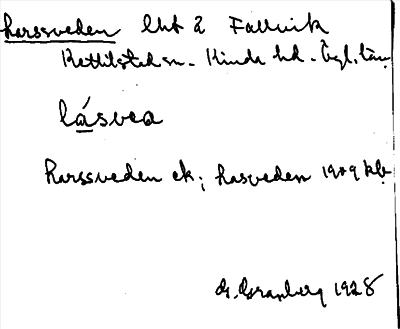 Larssveden lht å Fallvik
Kettilstad sn. Kinda hd. Ögl. län
lásvea
Larssveden ek; Lasveden 1909 kb.
G. Granberg 1928